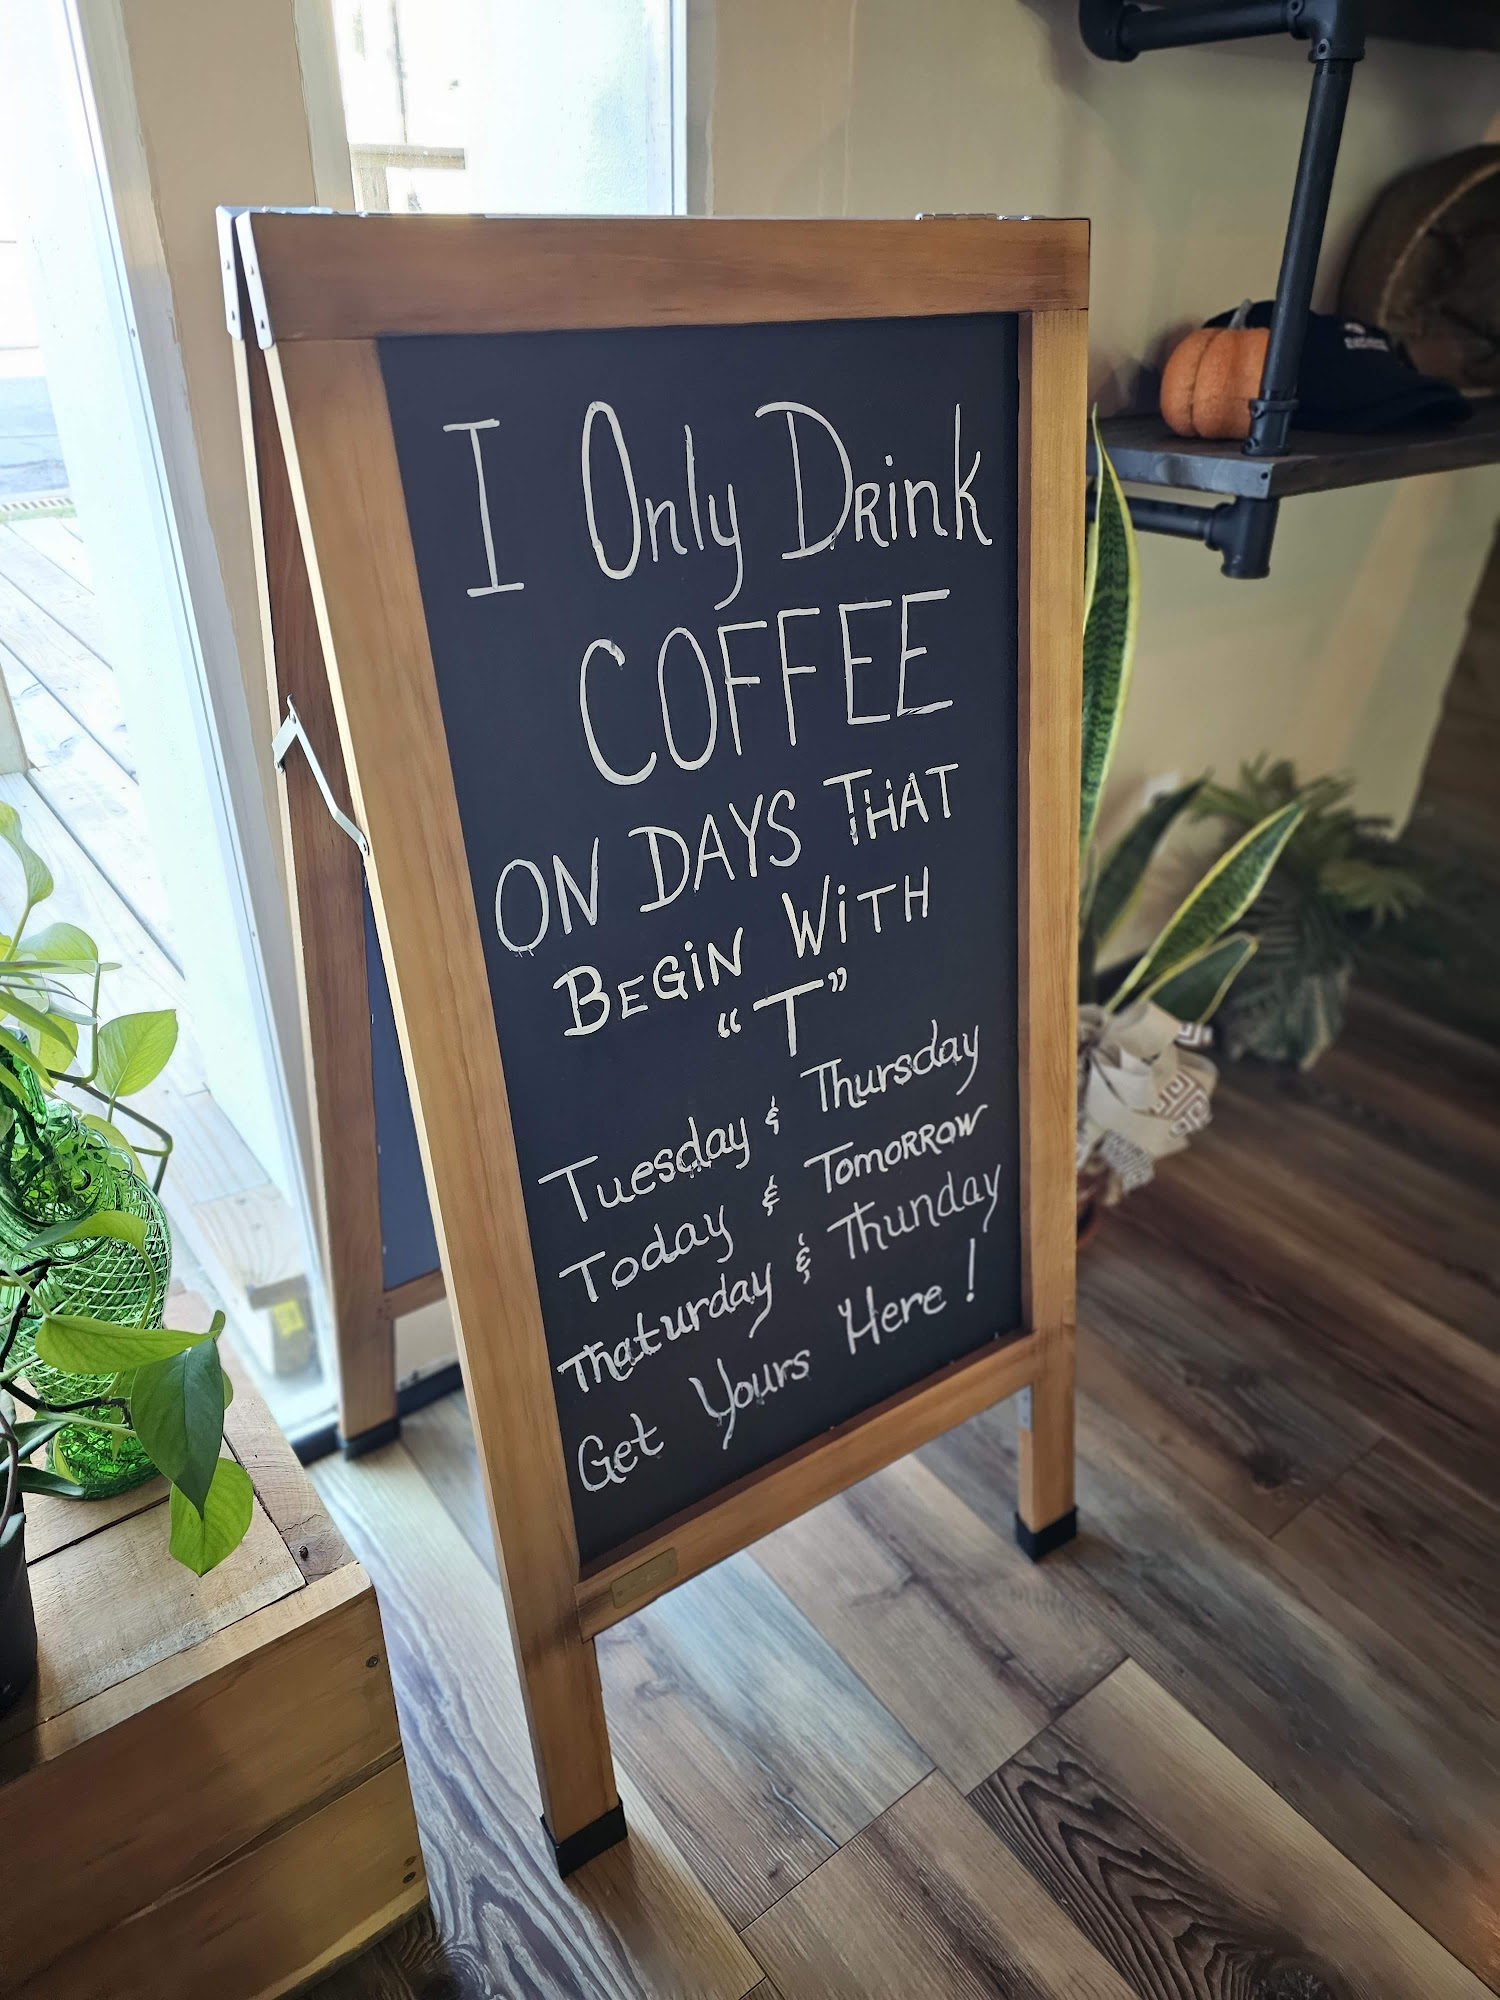 I Only Drink
COFFEE
ON DAYS THAT
BEGiN WiTH
“T”
Tuesday & Thursday
Today & Tomorrow
Thaturday & Thunday
Get Yours Here!